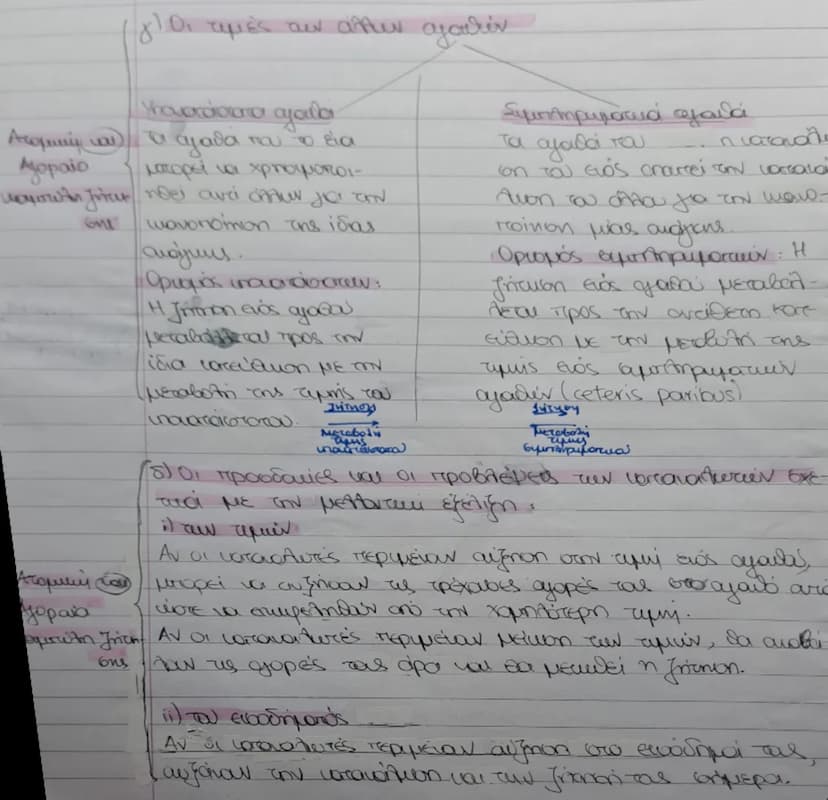 γ) Οι τιμές των άλλων αγαθών
Υποκατάστατα αγαθά
Τα αγαθά που το ένα
μπορεί να χρησιμοποι-
ηθεί αντί άλλων για την
ικανοποίηση της ίδιας
ανάγκης.
Ορισμός υποκατάστατων:
Η ζήτηση ενός αγαθού
μεταβάλλεται προς την
ίδια κατεύθυνση με την
μεταβολή της τιμής του
υποκατάστατου.
ζήτηση
Μεταβολή
τιμής
υποκατάστατα
Συμπληρωματικά αγαθά
Τα αγαθά που ... η κατανάλ
ση του ενός απαιτεί την κατανά
λωση του άλλου για την ικανο-
ποίηση μίας ανάγκης.
Ορισμός συμπληρωματικών: Η
ζήτηση ενός αγαθού μεταβάλ-
λεται προς την αντίθετη κατ
εύθυνση με την μεταβολή της
τιμής ενός συμπληρωματικών
αγαθών (ceteris paribus)
ζήτηση
Μεταβολή
τιμής
συμπληρωματικά
Ατομική και
Αγοραία
καμπύλη ζήτη
σης
δ) Οι προσδοκίες και οι προβλέψεις των καταναλωτών σχε-
τικά με την μελλοντική εξέλιξη:
i) των τιμών
Αν οι καταναλωτές περιμένουν αύξηση στην τιμή ενός αγαθού,
μπορεί να αυξήσουν τις τρέχουσες αγορές τους στο αγαθό αυτό
ώστε να επωφεληθούν από την χαμηλότερη τιμή.
Αν οι καταναλωτές περιμένουν μείωση των τιμών, θα αναβά
λουν τις αγορές τους άρα και θα μειωθεί η ζήτηση.
ii) του εισοδήματος
Αν οι καταναλωτές περιμένουν αύξηση στο εισόδημά τους,
αυξάνουν την κατανάλωση και την ζήτησή τους σήμερα.
Ατομική και
Αγοραία
καμπύλη ζήτη
σης